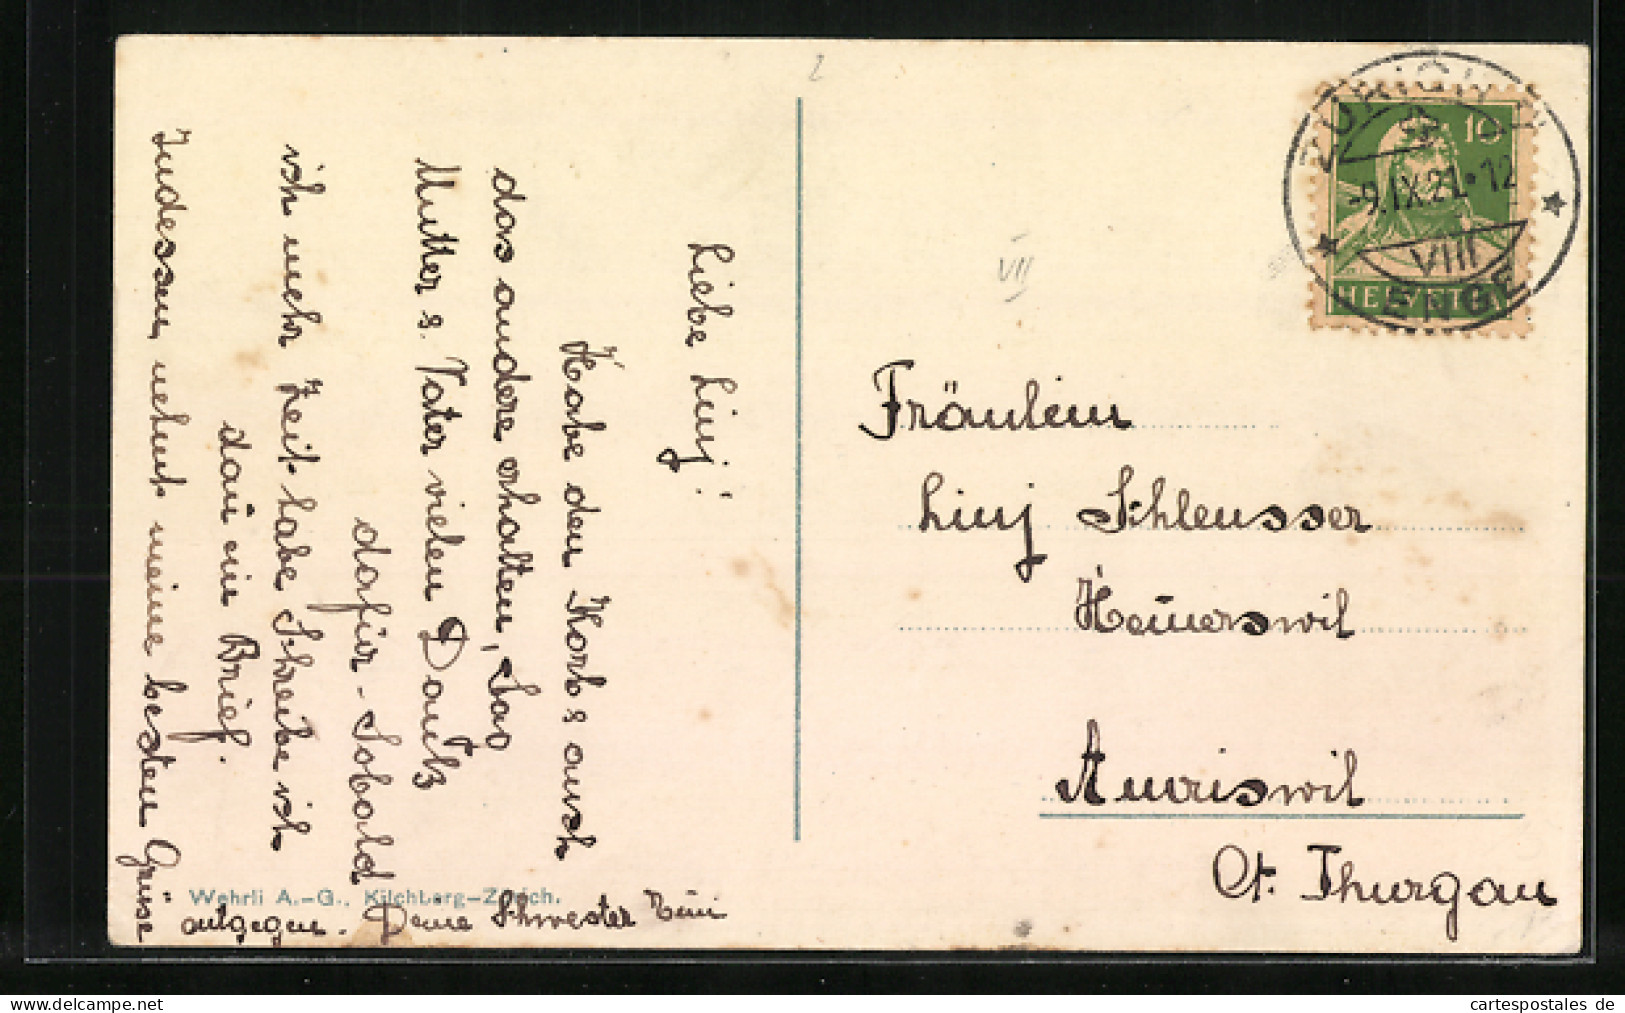 Liebe Linj!
Habe den Korb & auch
das andere erhalten, Sag
Mutter & Vater vielen Dank
dafür - Sobald
ich mehr Zeit habe schreibe ich
dan ein Brief.
Indessen nehmt meine besten Grüsse
entgegen. Deine Schwester
Wehrli A.-G., Kilchberg-Zürich.
VII
ZÜRICH
-9.IX.21.-12
VIII
ENGE
10
HELVETIA
Fräulein
Linj Schleusser
Hemerswil
Amriswil
Ct. Thurgau
cartespostales de